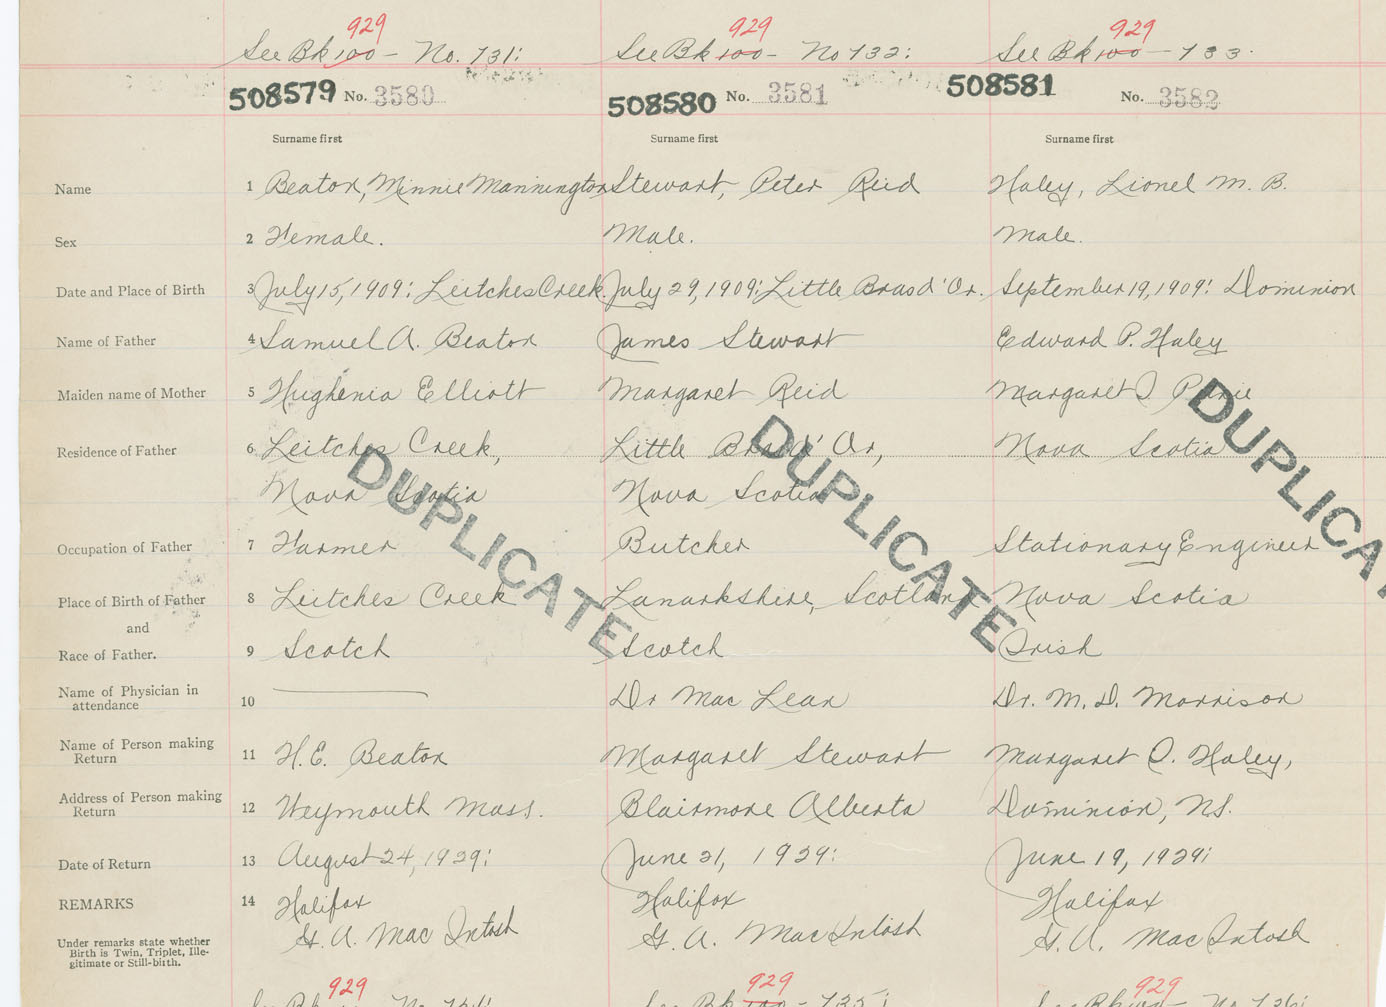 929 929 929
See Bk 100 - No. 731: See Bk 100 - No 732: See Bk 100 - 733.
508579 No. 3580 508580 No. 3581 508581 No. 3582
Surname first Surname first Surname first
Name 1 Beaton, Minnie Mannington Stewart, Peter Reid Haley, Lionel M. B.
Sex 2 Female. Male. Male.
Date and Place of Birth 3 July 15, 1909: Leitches Creek. July 29, 1909: Little Bras d'Or. September 19, 1909: Dominion
Name of Father 4 Samuel A. Beaton James Stewart Edward P. Haley
Maiden name of Mother 5 Hughenia Elliott Margaret Reid Margaret
Residence of Father 6 Leitches Creek, Little Bras d' Or, Nova Scotia
Nova Scotia Nova Scotia
DUPLICATE DUPLICATE DUPLICA
Occupation of Father 7 Farmer Butcher Stationary Engineer
Place of Birth of Father 8 Leitches Creek Lanarkshire, Scotland Nova Scotia
and
Race of Father. 9 Scotch Scotch Irish
Name of Physician in
attendance 10 Dr Mac Lean Dr. M. D. Morrison
Name of Person making
Return 11 H.E. Beaton Margaret Stewart Margaret Haley,
Address of Person making
Return 12 Weymouth Mass. Blairmore Alberta Dominion, N.S.
Date of Return 13 August 24, 1929: June 21, 1929: June 19, 1929:
REMARKS 14 Halifax Halifax Halifax
G. A. Mac Intosh G. A. MacIntosh G. A. MacIntosh
Under remarks state whether
Birth is Twin, Triplet, Ille-
gitimate or Still-birth.
929 929 929
See Bk 100 - 735: